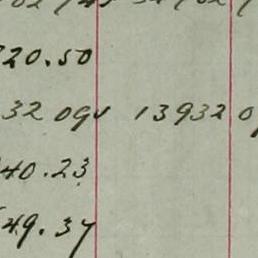 20.50
32 09 13932 0
40.23
49.37